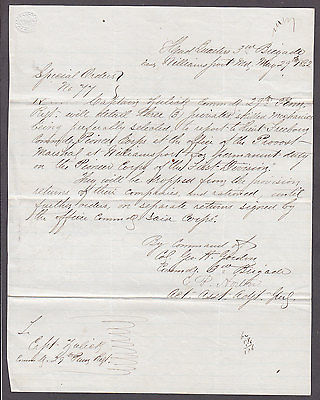 Head Quarters 3rd Brigade
near Williamsport Md, May 29th 1862
Special Orders
No 77
Captain Zulick Commdg 29th Penn
Regt. will detail three (3) privates
being preferably selected to report to Lieut
Comdg Pioneer Corps at the office of the Provost
Marshal at Williamsport for permanent duty
on the Pioneer Corps of the First Division.
They will be dropped from the provision
returns of their companies, and rationed until
further orders, on separate returns signed by
the officer commdg said Corps.
By Command of
Col. Geo. H. Gordon
Commdg 3rd Brigade
Act. Asst. Adjt. Genl.
To
Capt Zulick
Commdg 29th Penn Regt